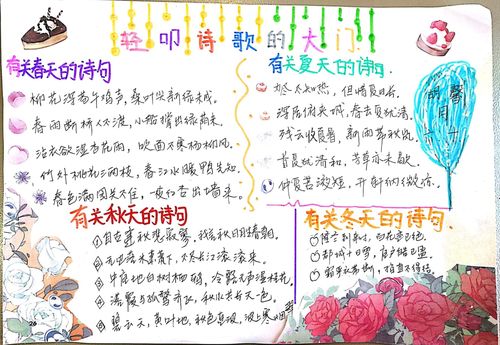 轻叩诗歌的大门
有关春天的诗句
柳花深巷午鸡声,桑叶尖新绿未成。
春雨断桥人不渡,小船撑出绿荫来。
沾衣欲湿杏花雨,吹面不寒杨柳风。
竹外桃花三两枝,春江水暖鸭先知。
春色满园关不住,一枝红杏出墙来。
有关夏天的诗句
深居俯夹城,春去夏犹清。
残云收夏暑,新雨
首夏犹清和,芳草亦未歇。
仲夏苦夜短,开轩纳微凉。
有关秋天的诗句
①自古逢秋悲寂寥,我言秋日胜春朝。
②无边落木萧萧下,不尽长江滚滚来。
③中庭地白树栖鸦,冷露无声湿桂花。
④落霞与孤鹜齐飞,秋水共长天一色。
⑤碧云天,黄叶地,秋色连波,波上寒烟翠
有关冬天的诗句